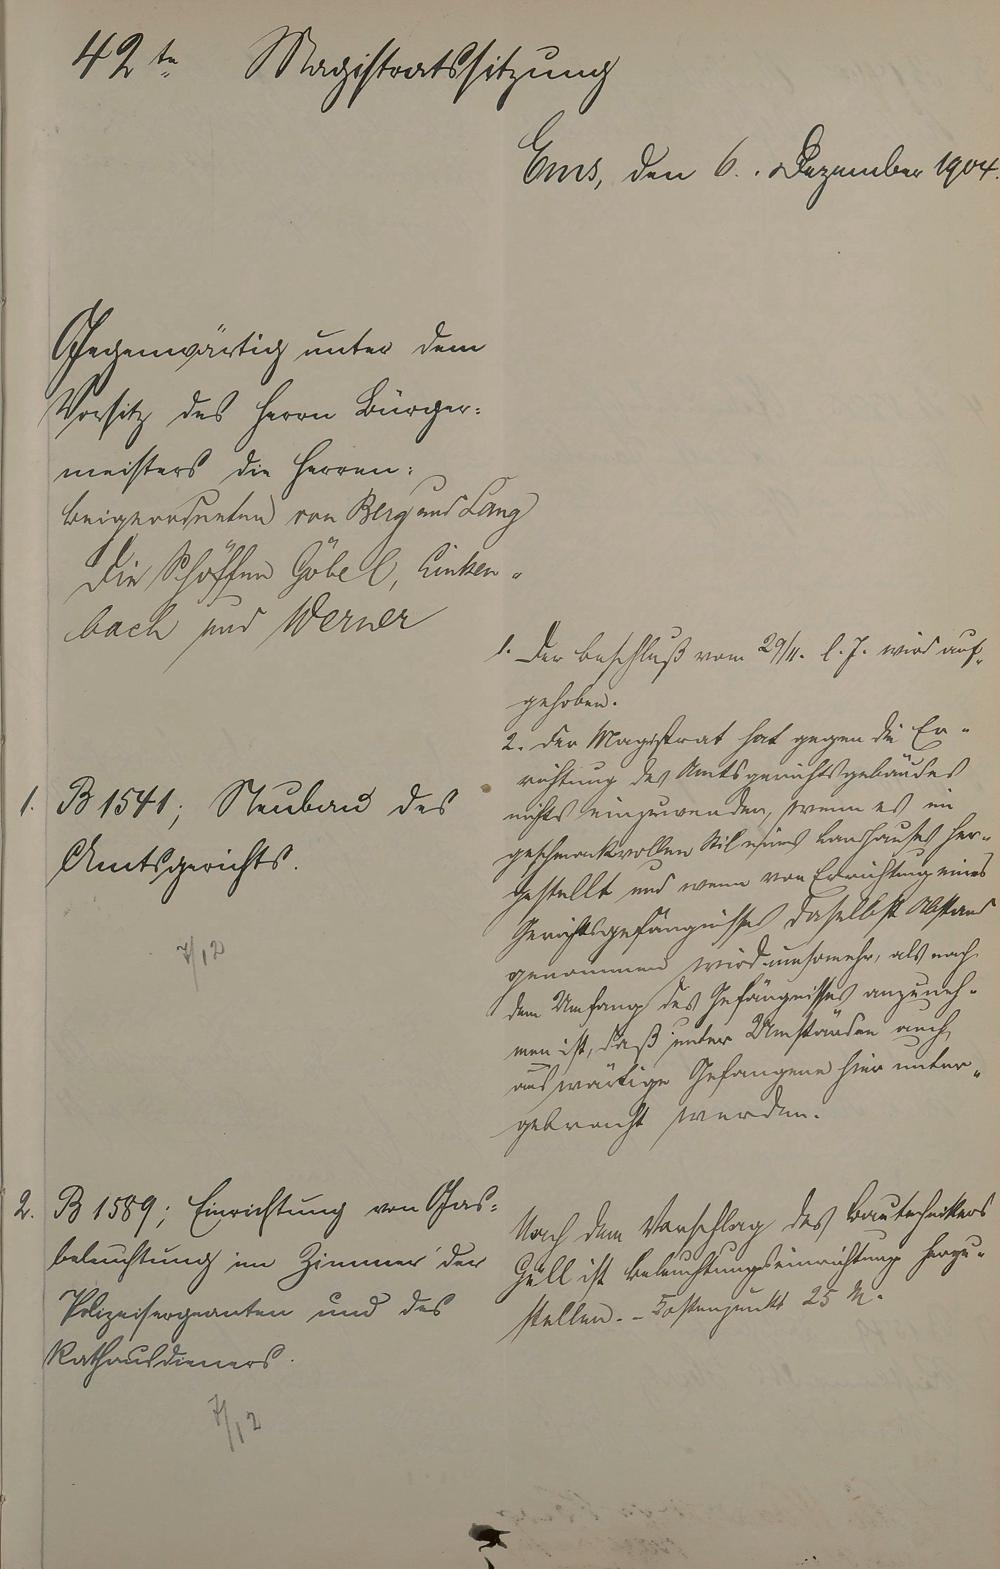 42te Magistratssitzung
Ems, den 6. Dezember 1904.
Gegenwärtig unter dem
Vorsitz des Herrn Bürger-
meisters die Herren:
Beigeordneten von Berg und Lang
Die Schöffen Göbel, Linken-
bach und Werner
1. B 1541; Neubau des
Amtsgerichts.
7/12
1. Der Beschluß vom 29/11. l. J. wird auf-
gehoben.
2. Der Magistrat hat gegen die Er-
richtung des Amtsgerichtsgebäudes
nichts einzuwenden, wenn es im
geschmackvollen Stil eines Landhauses her-
gestellt und wenn von Errichtung eines
Gerichtsgefängnisses daselbst Abstand
genommen wird umsomehr, als nach
dem Umfang des Gefängnisses anzuneh-
men ist, daß unter Umständen auch
auswärtige Gefangene hier unter-
gebracht werden.
2. B 1589; Einrichtung von Gas-
beleuchtung im Zimmer der
Polizeisergeanten und des
Rathausdieners.
7/12
Nach dem Vorschlag des Bautechnikers
ist Beleuchtungseinrichtung herzu-
stellen. - Kostenpunkt 25 M.